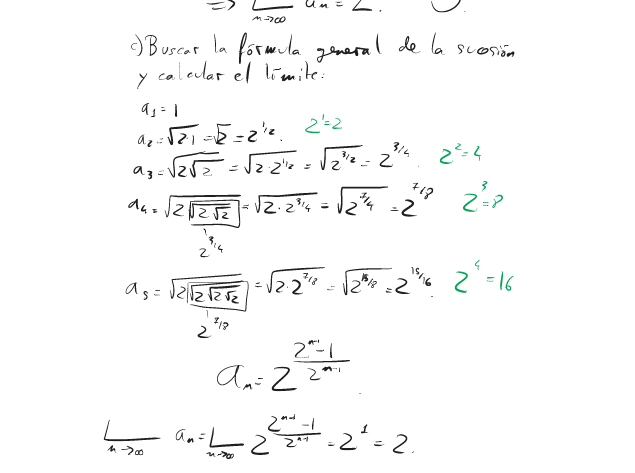 => L n→∞ an = 2.
c) Buscar la fórmula general de la sucesión
y calcular el límite:
a₁ = 1
a₂ = √(2·1) = √2 = 2^(1/2). 2^1 = 2
a₃ = √(2√2) = √(2·2^(1/2)) = √(2^(3/2)) = 2^(3/4). 2^2 = 4
a₄ = √(2√(2√2)) = √(2·2^(3/4)) = √(2^(7/4)) = 2^(7/8) 2^3 = 8
2^(3/4)
a₅ = √(2√(2√(2√2))) = √(2·2^(7/8)) = √(2^(15/8)) = 2^(15/16). 2^4 = 16
2^(7/8)
aₙ = 2^((2^(n-1) - 1)/2^(n-1))
L n→∞ aₙ = L n→∞ 2^((2^(n-1) - 1)/2^(n-1)) = 2^1 = 2.